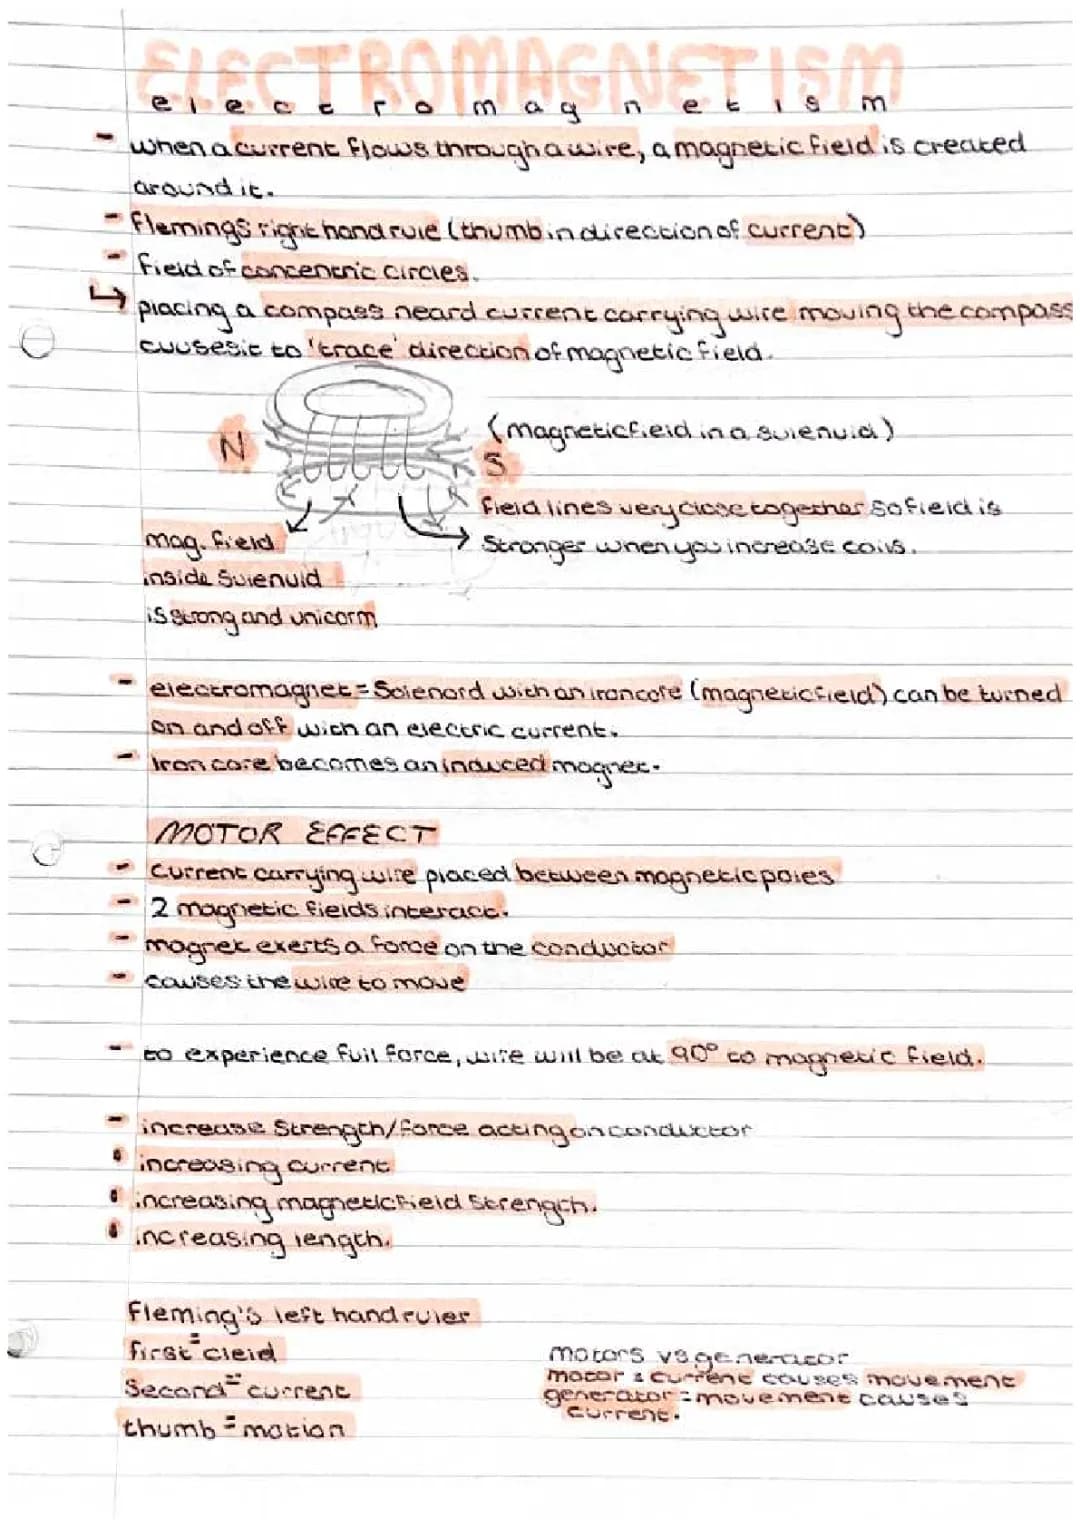 ELECTROMAGNETISM
electromagnetism
- when a current flows through a wire, a magnetic field is created
around it.
- flemings right hand rule (thumb in direction of current)
- field of concentric circles.
↳ placing a compass neard current carrying wire moving the compass
cuusesit to 'trace' direction of magnetic field.
(magnetic field in a suienuid)
N
S
field lines very close together so field is
stronger when you increase coils.
mag. field
inside suienuid
is strong and unicorm
- electromagnet = Solenord with an iron core (magnetic field) can be turned
on and off with an electric current.
- Iron core becomes an induced magnet.
MOTOR EFFECT
- Current carrying wire placed between magnetic poles
- 2 magnetic fields interact.
- magnet exerts a force on the conductor
- causes the wire to move
- to experience full force, wire will be at 90° to magnetic field.
- increase Strength/force acting on conductor
• increasing current
• increasing magnetic field Strength.
• increasing length.
Fleming's left hand ruler
first = cield
Second = current
thumb = motion
motors vs generator
motor = current causes movement
generator = movement causes
current.